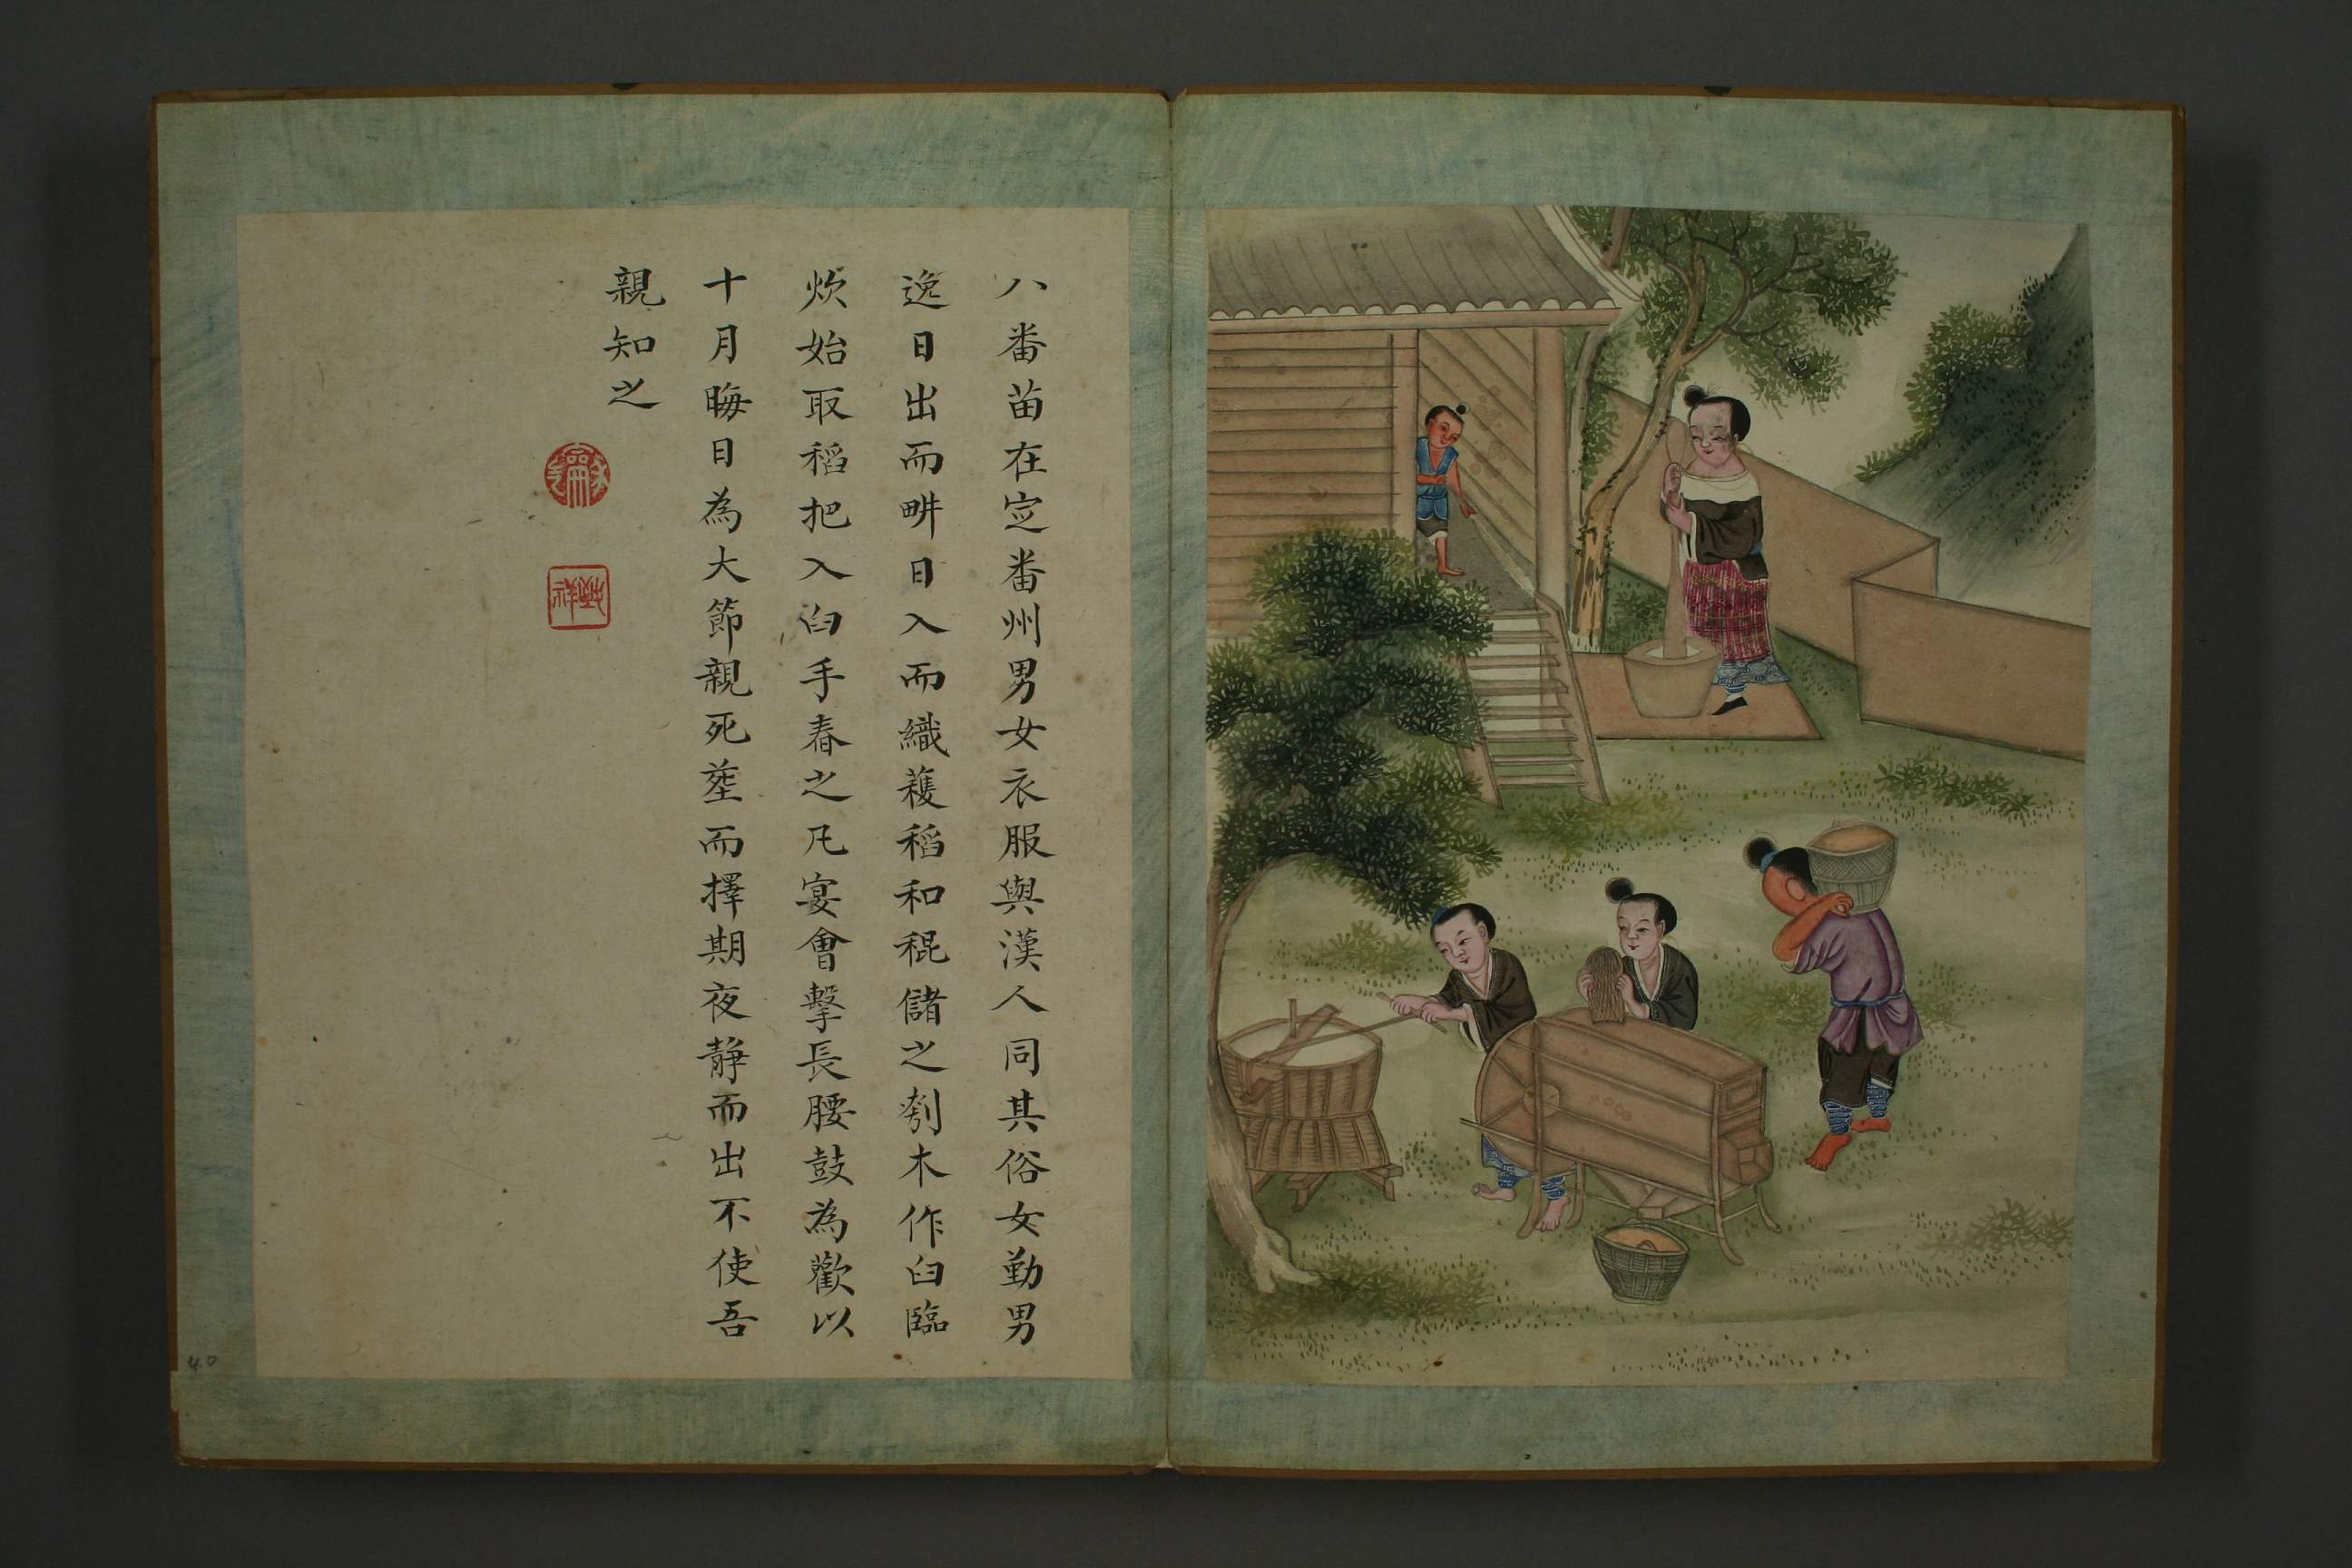 八番苗在定番州男女衣服與漢人同其俗女勤男
逸日出而畊日入而織穫稻和稇儲之刳木作臼臨
炊始取稻把入臼手舂之凡宴會擊長腰鼓為歡以
十月晦日為大節親死塟而擇期夜靜而出不使吾
親知之
40